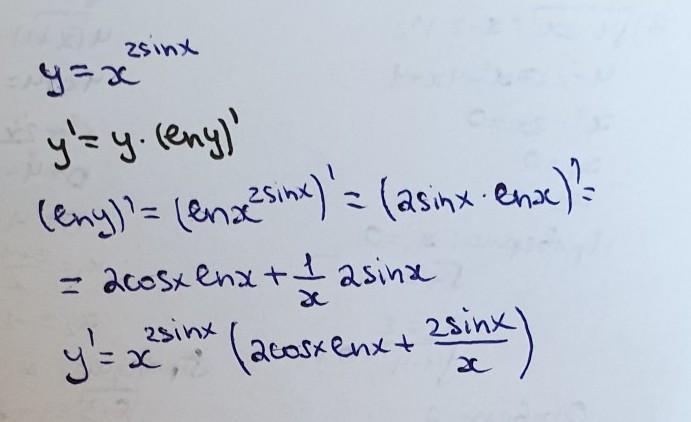 y = x^{2sinx}
y' = y · (lny)'
(lny)' = (lnx^{2sinx})' = (2sinx · lnx)' =
= 2cosx lnx + \frac{1}{x} 2sinx
y' = x^{2sinx} · (2cosx lnx + \frac{2sinx}{x})